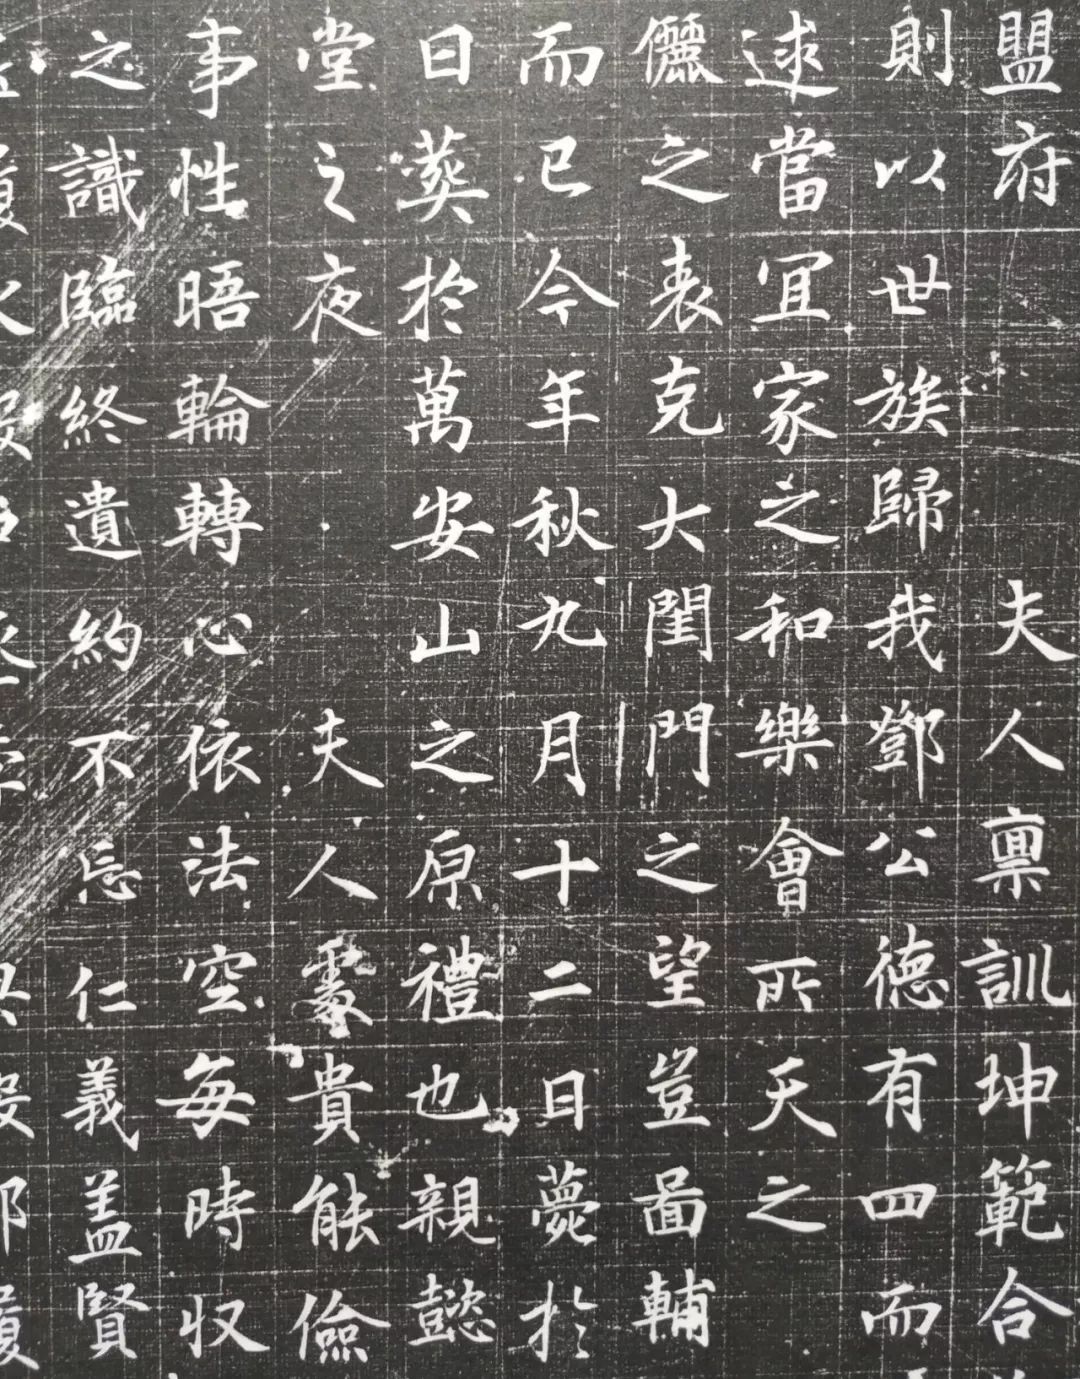 盟府夫人禀訓坤範合
則以世族歸我鄧公德有四而
逑當宜家之和樂會所天之
儷之表克大閨門之望豈啚輔
而已今年秋九月十二日薨於
日葬於萬安山之原禮也親懿
堂之夜夫人處貴能儉
事性晤輪轉心依法空每時収
之識臨終遺約不忘仁義盖賢